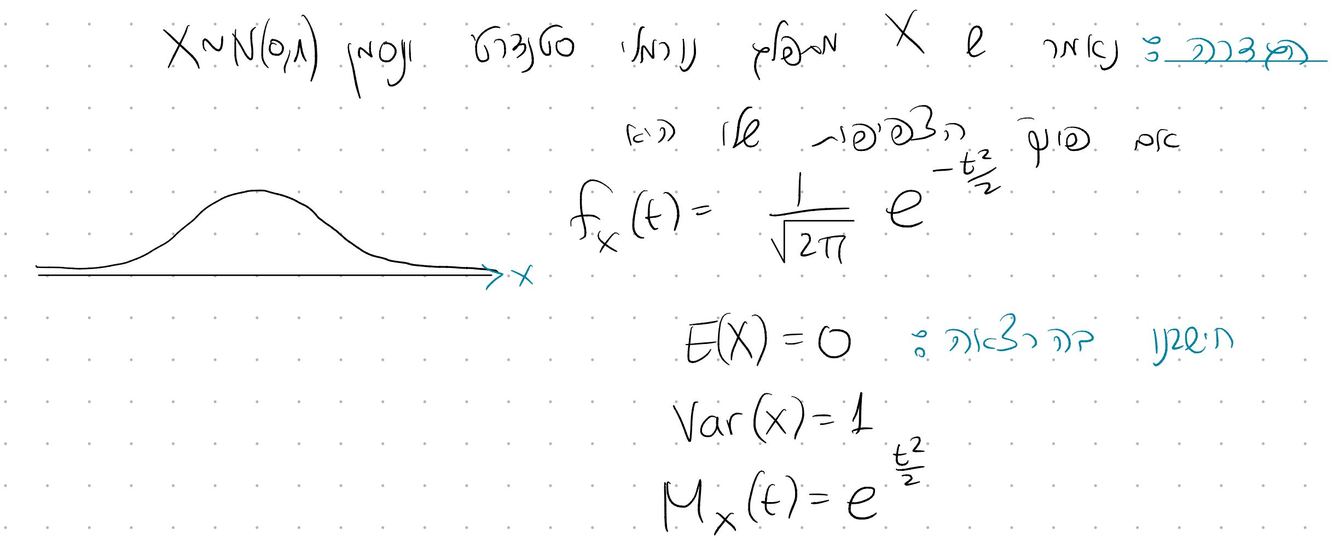 הגדרה: נאמר ש X מתפלג נורמלי סטנדרט ונסמן X~N(0,1)
אם פונק' הצפיפות שלו היא
f_X(t) = 1/√(2π) e^(-t²/2)
x
חישבנו בהרצאה: E(X) = 0
Var(x) = 1
M_X(t) = e^(t²/2)